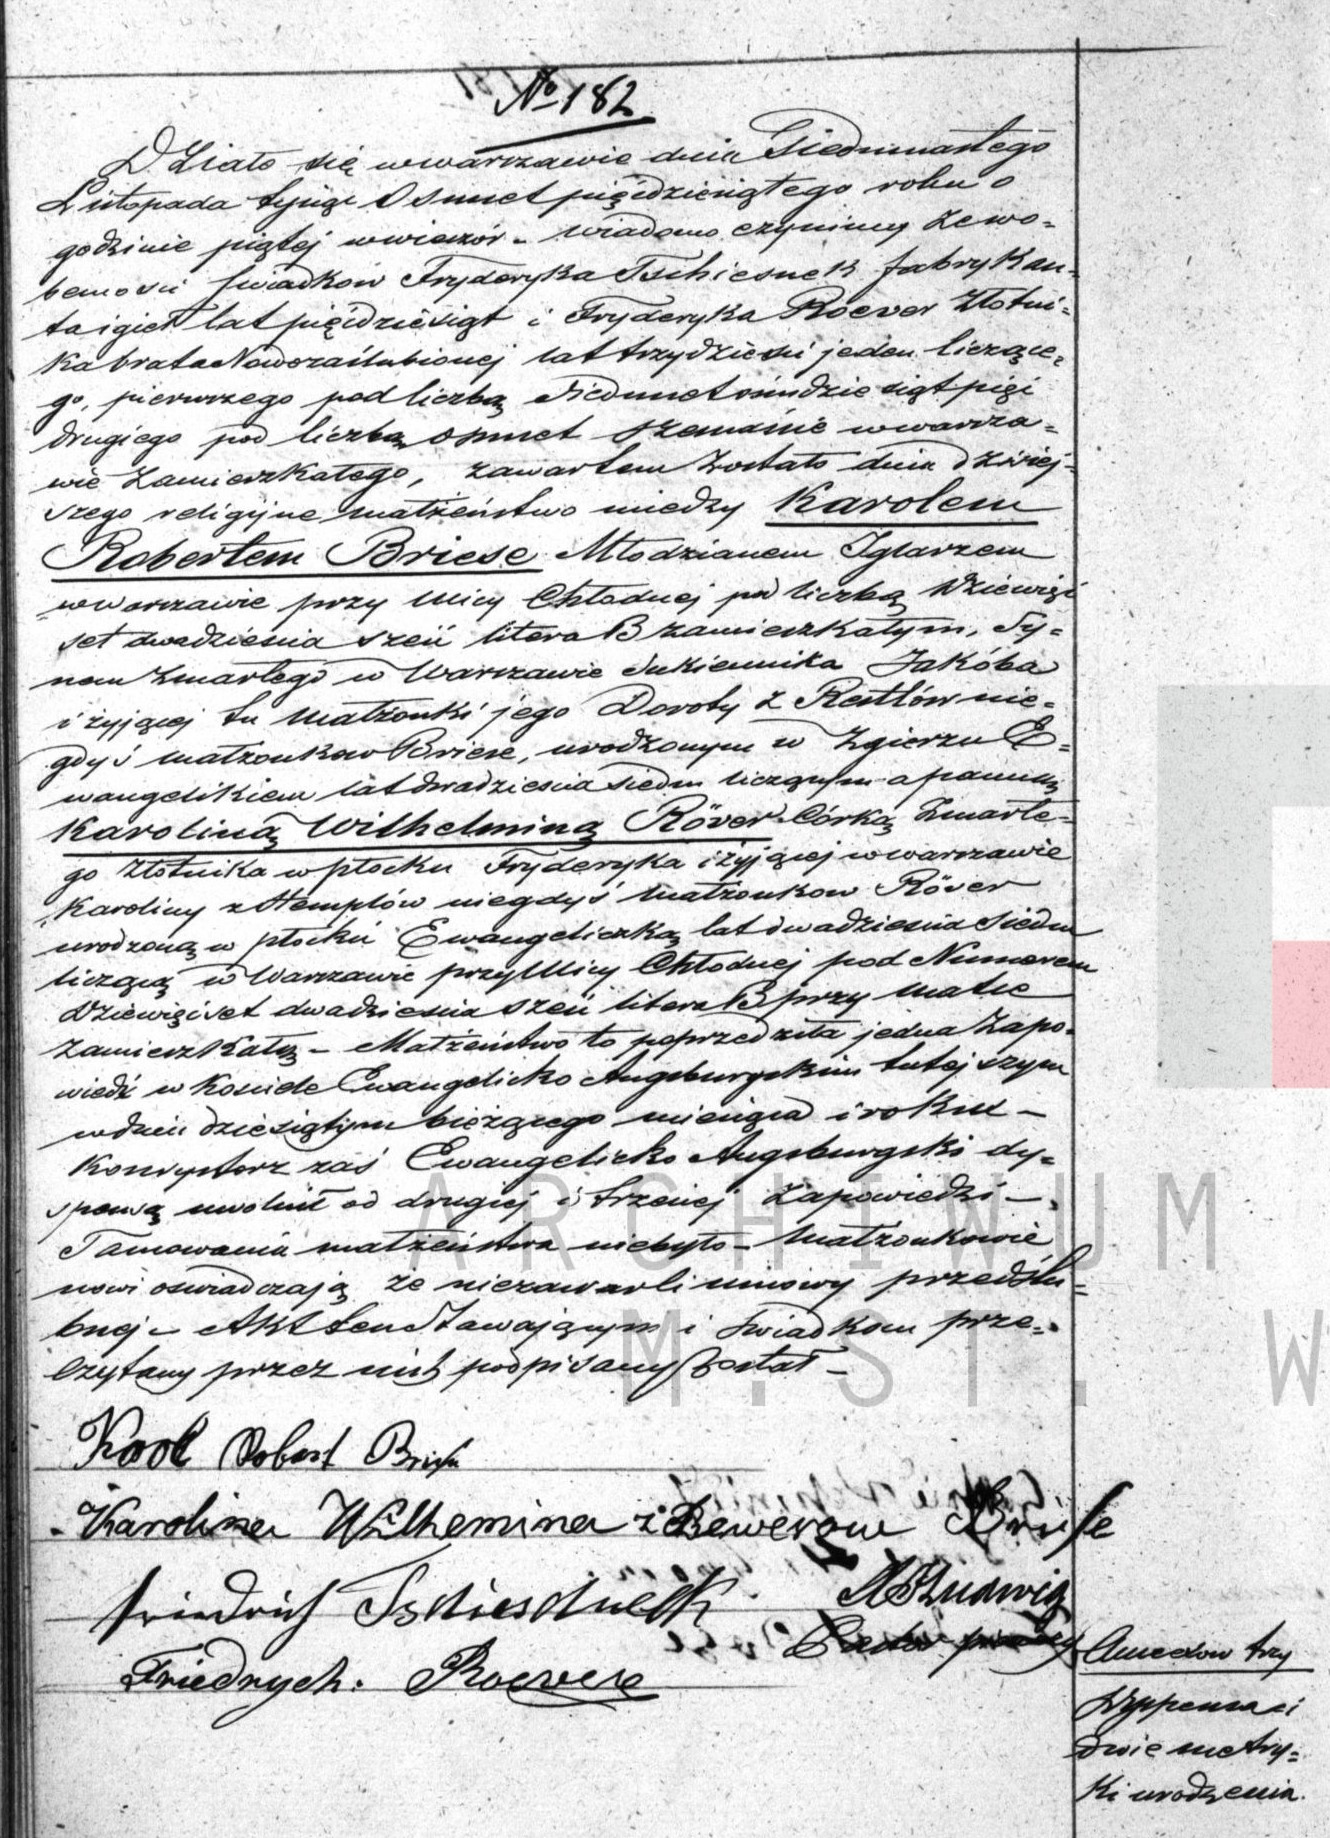 № 182
Działo się w Warszawie dnia Siedmnastego
Listopada Tysiąc Osmset pięćdziesiątego roku o
godzinie piątej wwieczór – wiadomo czynimy że wo=
becności Swiadków Fryderyka Tschiesnek fabrykan=
ta igieł lat pięćdziesiąt i Fryderyka Roever Złotni=
ka brata Nowozaślubionej lat trzydzieści jeden liczące=
go, pierwszego pod liczbą Siedmset ośmdziesiąt pięć
drugiego pod liczbą osmset wwarsza=
wie Zamieszkałego, zawartem zostało dnia dzisiej=
szego religijne małżeństwo miedzy Karolem
Robertem Briese Młodzianem Iglarzem
wwarszawie przy Ulicy Chłodnej pod liczbą Dziewięć
set dwadzieścia sześć litera B zamieszkałym, Sy=
nem Zmarłego w Warszawie Sukiennika Jakóba
i żyjącej tu Małżonki jego Doroty z nie=
gdyś małżonkow Briese, urodzonym w Zgierzu E=
wangelikiem lat dwadzieścia siedm liczącym a panną
Karoliną Wilhelminą Röver Córką Zmarłe=
go Złotnika w płocku Fryderyka i żyjącej wwarszawie
Karoliny z Hemplów niegdyś Małżonkow Röver
urodzoną w płocku Ewangeliczką lat dwadzieścia siedm
liczącą w Warszawie przy Ulicy Chłodnej pod Numerem
Dziewięćset dwadzieścia sześć litera B przy Matce
zamieszkałą – Małżeństwo to poprzedziła jedna Zapo=
wiedź w Kosciele Ewangelicko Augsburgskim tutejszym
w dniu dziesiątym bieżącego miesiąca i roku –
Konsystorz zaś Ewangelicko Augsburgski dy=
spensą uwolnił od drugiej i trzeciej Zapowiedzi –
Tamowania małżeństwa niebyło – Małżonkowie
nowi oświadczają że niezawarli umowy przedślu=
bnej – Akt ten Stawającym i Swiadkom prze=
czytany przez nich podpisany został –
Karol Robert Briese
Karolina Wilhemina z Rewerow Briese
Friedrich Tschieschnek
A Ludwig
Friedrych. Roever
Annexow trzy
Dyspensa i
dwie metry=
ki urodzenia.
ARCHIWUM
M. ST. W